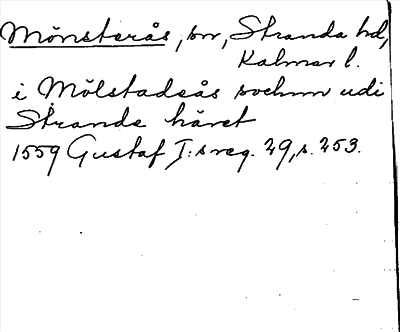 Mönsterås, sn, Stranda hd,
Kalmar l.
i Mölstadsås sochnn udi
Strande häret
1559 Gustaf I:s reg. 29, s. 253.